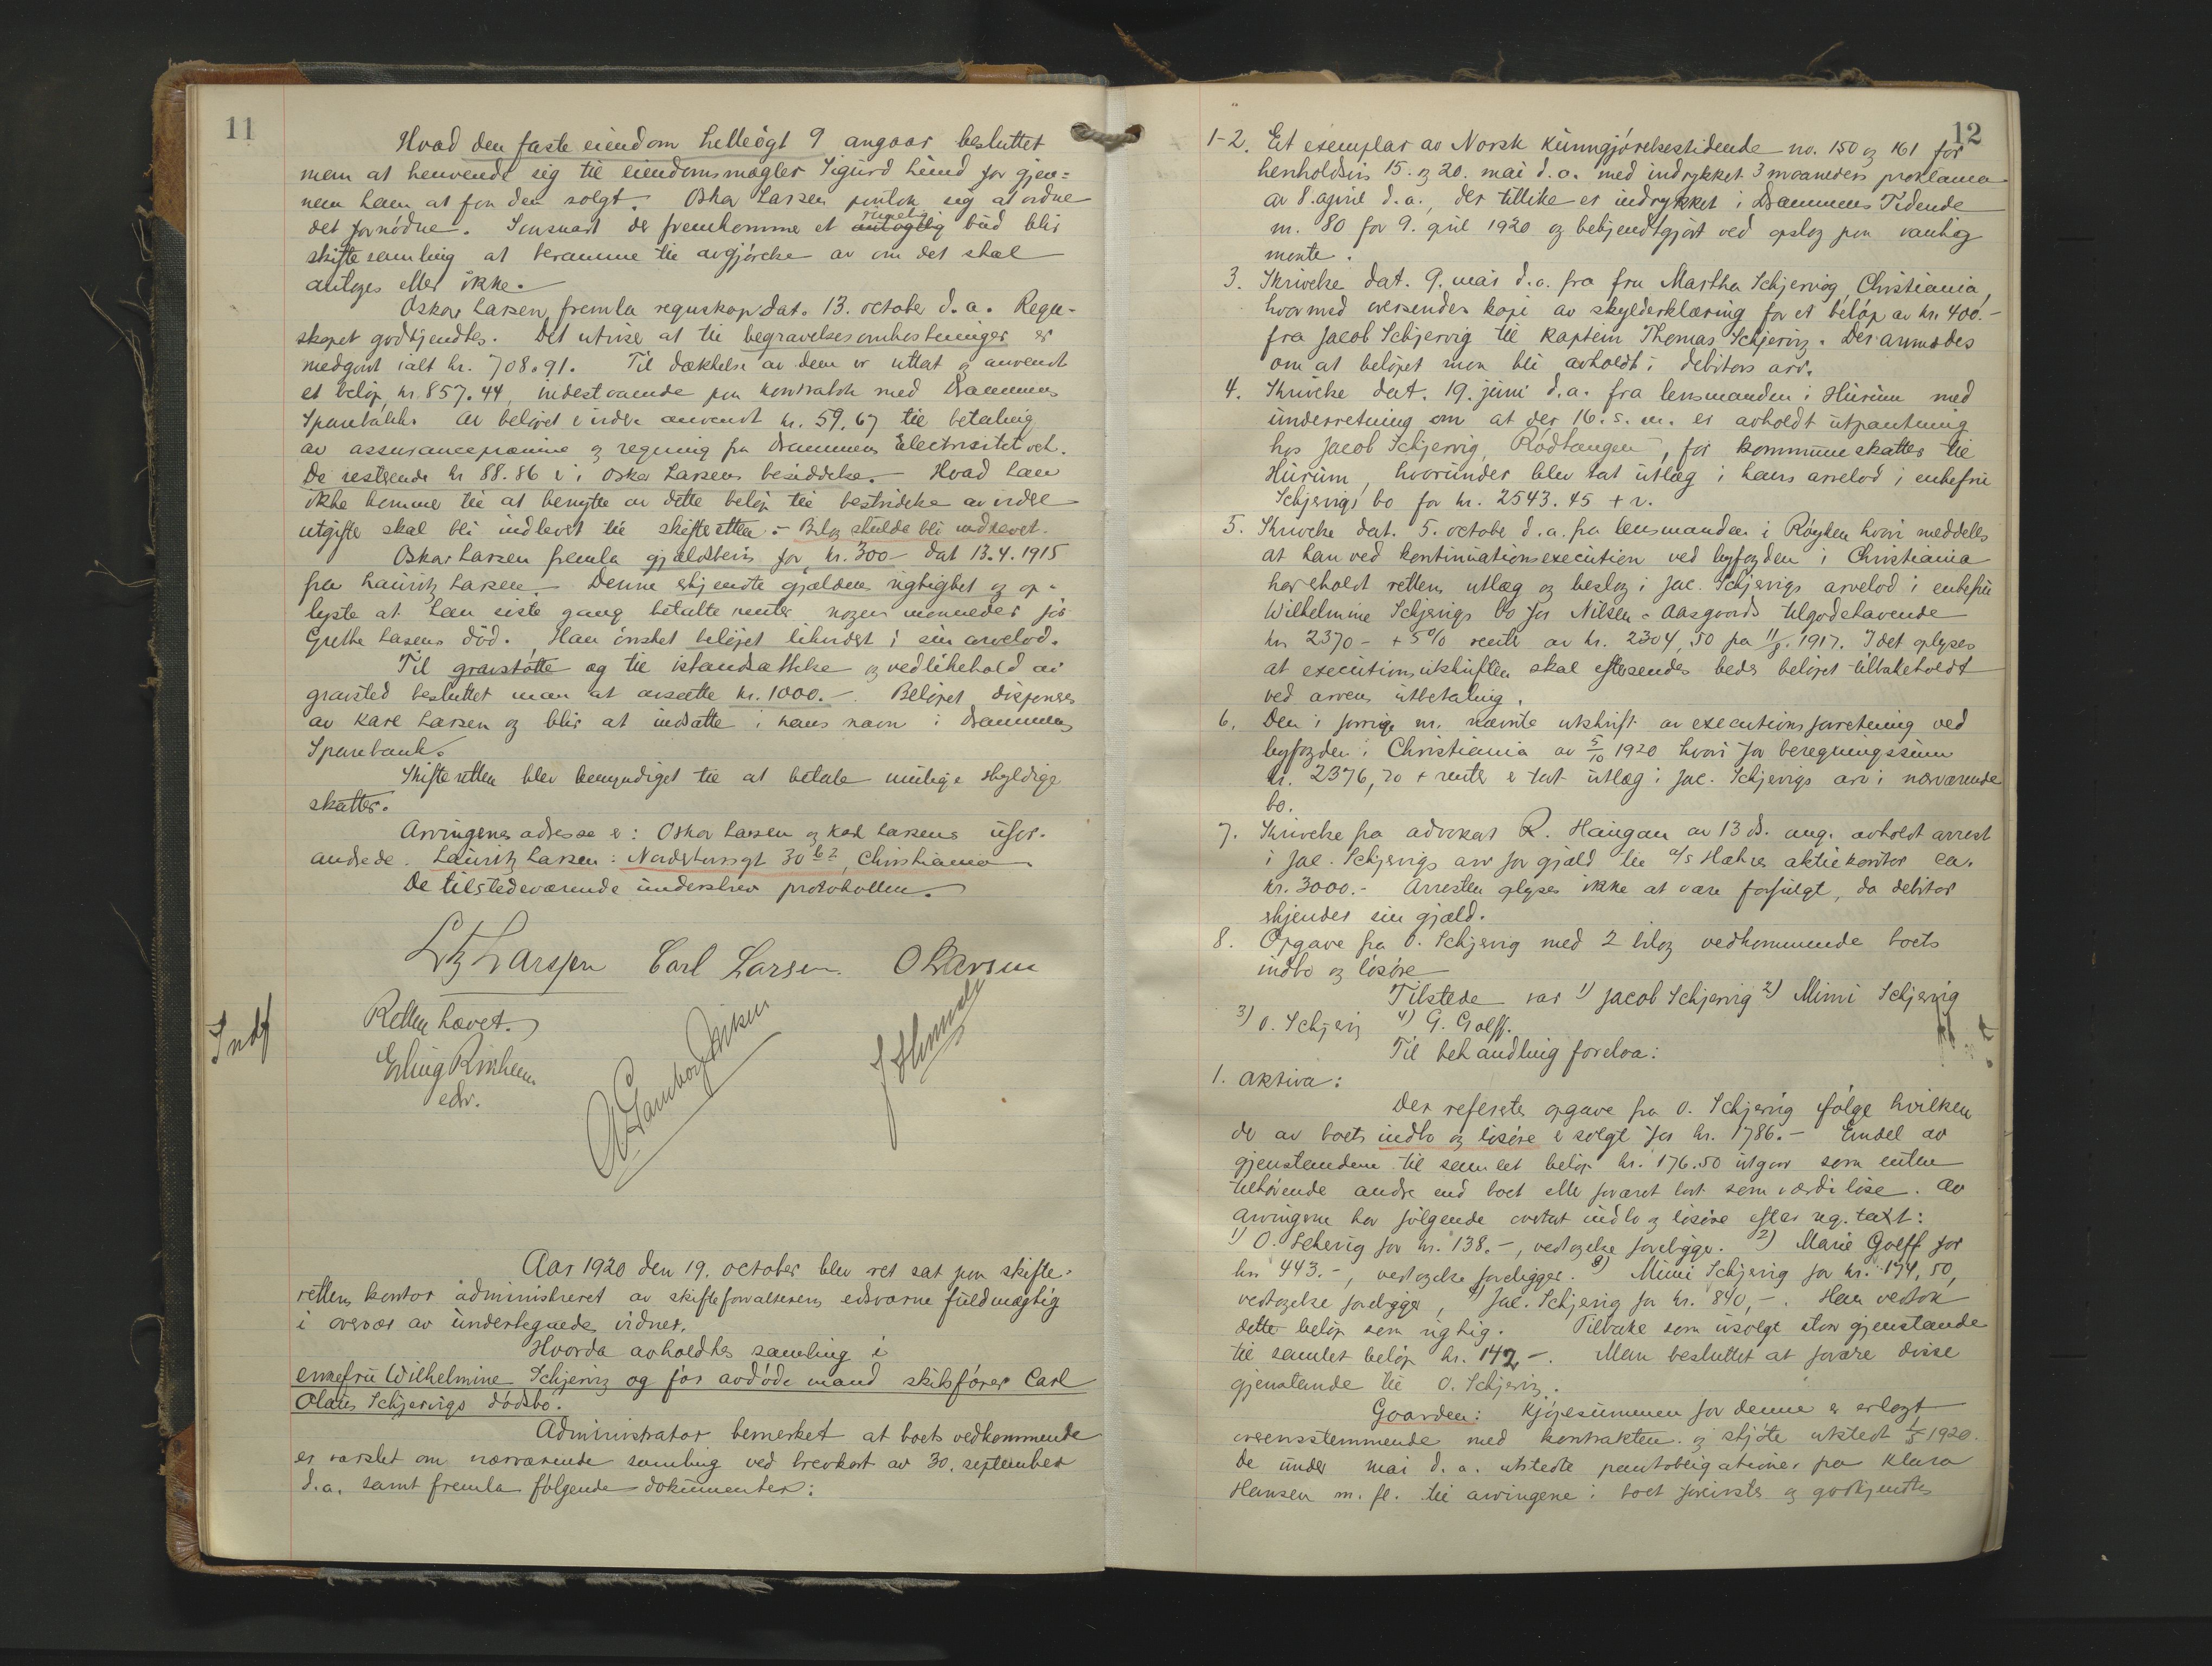 11
Hvad den faste eiendom Helleögt 9 angaar besluttet
man at henvende sig til eiendomsmægler Sigurd Lund for gjen=
nem ham at faa den solgt. Oskar Larsen paatok sig at ordne
det fornödne. Saasnart der fremkommer et antagelig rimelig bud blir
skiftesamling at beramme til avgjörelse av om det skal
antages eller ikke.
Oskar Larsen fremla regnskap dat. 13. october d.a. Regn-
skapet godkjendtes. Det utviser at til begravelsesomkostninger er
medgaat ialt kr. 708.91. Til dækkelse av dem er uttat og anvendt
et belöp kr. 857.44, indestaaende paa kontrabok med Drammens
Sparebank. Av belöpet er videre anvendt kr. 59.67 til betaling
av assurancepræmie og regning fra Drammens Electricitetverk.
De resterende kr 88.86 er i Oskar Larsens besiddelse. Hvad han
ikke kommer til at benytte av dette belöp til bestridelse av videre
utgifter skal bli indlevert til skifteretten. - Bilag skulde bli indlevert.
Oskar Larsen fremla gjældsbevis for kr. 300 dat 13.4.1915
fra Lauritz Larsen. Denne erkjendte gjældens rigtighet og op-
lyste at han siste gang betalte renter nogen maaneder för
Grethe Larsens död. Han önsket belöpet likvidert i sin arvelod.
Til gravstötte og til istandsættelse og vedlikehold av
gravsted besluttet man at avsætte kr. 1000.-. Belöpet disponeres
av Karl Larsen og blir at indsætte i hans navn i Drammens
Sparebank.
Skifteretten blev bemyndiget til at betale mulige skyldige
skatter.
Arvingenes adresse er: Oskar Larsen og Karl Larsens ufor-
andrede. Lauritz Larsen: Nordahl 30 b 2, Christiania
De tilstedeværende underskrev protokollen.
Ltz Larssen Carl Larsen. O Larsen
Retten hævet.
Indf
Erling Rinheim
edsv.
Aar 1920 den 19. october blev ret sat paa skifte-
rettens kontor administreret av skifteforvalterens edsvorne fuldmægtig
i overvær av undertegnede vidner.
Hvorda avholdtes samling i
enkefru Wilhelmine Schjervig og för avdöde mand skibsförer Carl
Olaus Schjervigs dödsbo.
Administrator bemerket at boets vedkommende
er varslet om nærværende samling ved brevkort av 30. september
d.a. samt fremla fölgende dokumenter:
12
1-2. Et exemplar av Norsk Kunngjörelsestidende no. 150 og 161 for
henholdsvis 15. og 20. mai d.a. med indrykket 3 maaneders proklama
av 8. april d.a., der tillike er indrykket i Drammens Tidende
nr. 80 for 9. april 1920 og bekjendtgjort ved opslag paa vanlig
maate.
3. Skrivelse dat. 9. mai d.a. fra fru Martha Schjervig, Christiania,
hvormed oversendes kopi av skylderklæring for et belöp av kr. 400.-
fra Jacob Schjervig til kaptein Thomas Schjervig. Der anmodes
om at belöpet maa bli avholdt i debitors arv.
4. Skrivelse dat. 19. juni d.a. fra lensmanden i Hurum med
underretning om at der 16. s.m. er avholdt utpantning
hos Jacob Schjervig, Rödtangen, for kommuneskatter til
Hurum, hvorunder blev tat utlæg i hans arvelod i enkefru
Schjervigs bo for kr. 2543.45 + r.
5. Skrivelse dat. 5. october d.a. fra lensmanden i Röyken hvori meddeles
at han ved kontinuationsexecution ved byfogden i Christiania
har eholdt rettens utlæg og beslag i Jac. Schjervigs arvelod i enkefru
Wilhelmine Schjervigs bo for Nilsen - Aasgaards tilgodehavende
kr 2370 - + 5% rente av kr. 2304,50 fra 1917. Idet oplyses
at executionsutskriften skal eftersendes bedes belöpet tilbakeholdt
ved arvens utbetaling.
6. Den i forrige nr. nævnte utskrift av executionsforretning ved
byfogden i Christiania av 5/10 1920 hvori for beregningssum
kr. 2376,20 + renter er tat utlæg i Jac. Schjervigs arv i nærværende
bo.
7. Skrivelse fra advokat R. Haugan av 13 ds. ang. avholdt arrest
i Jac. Schjervigs arv for gjæld til a/s Hæhres aktiekontor ca.
kr. 3000.- Arresten oplyses ikke at være forfulgt, da debitor
erkjender sin gjæld.
8. Opgave fra O. Schjervig med 2 bilag vedkommende boets
indbo og lösöre
Tilstede var 1) Jacob Schjervig 2) Mimi Schjervig
3) O. Schjervig 4) G. Golff.
Til behandling forelaa:
1. Aktiva:
Der refereres opgave fra O. Schjervig ifölge hvilken
der av boets indbo og lösöre er solgt for kr. 1786.- Endel av
gjenstandene til samlet belöp kr. 176.50 utgaar som enten
tilhörende andre end boet eller foræret bort som værdilöse. Av
arvingene har fölgende overtat indbo og lösöre efter reg. takst:
1) O. Schervig for kr. 138.-, vedtagelse foreligger. 2) Marie Golff for
kr. 443.-, vedtagelse foreligger. 3) Mimi Schjervig for kr. 174,50,
vedtagelse foreligger, 4) Jac. Schjervig for kr. 840,-. Han vedtok
dette belöp som rigtig. Tilbake som usolgt staar gjenstande
til samlet belöp kr. 142 -. Man besluttet at foræere disse
gjenstande til O. Schjervig.
Gaarden: Kjöpesummen for denne er erlagt
overensstemmende med kontrakten og skjöte utstedt 1/5 1920.
De under mai d.a. utstedte pantobligationer fra Klara
Hansen m. fl. til arvingene i boet forevistes og godkjendtes